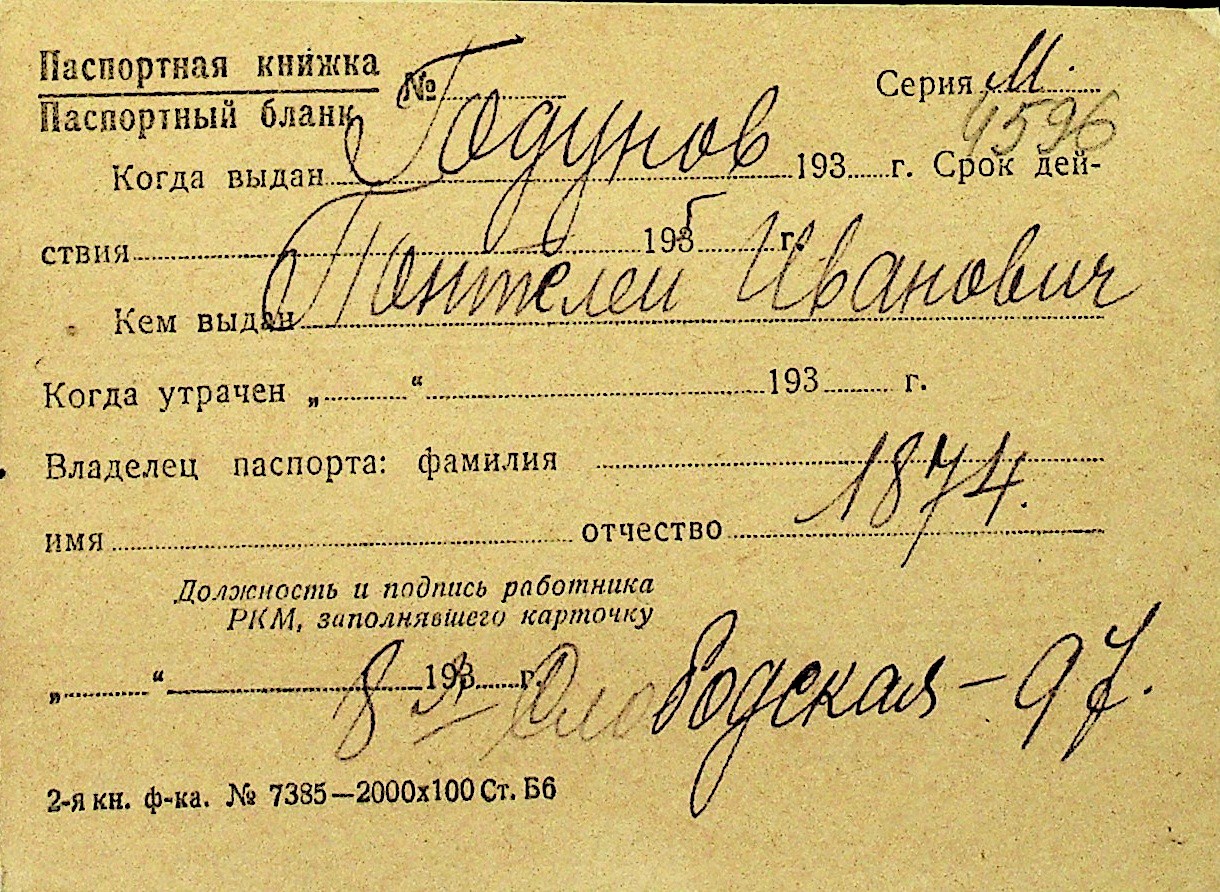 Паспортная книжка
Паспортный бланк № Серия М.
4596
Годунов
Когда выдан 193 г. Срок дей-
ствия 193 г.
Пантелей Иванович
Кем выдан
Когда утрачен „ “ 193 г.
Владелец паспорта: фамилия
1874.
имя отчество
Должность и подпись работника
РКМ, заполнявшего карточку
„ “ 193 г.
8 Слободская – 97.
2-я кн. ф-ка. № 7385—2000х100 Ст. Б6